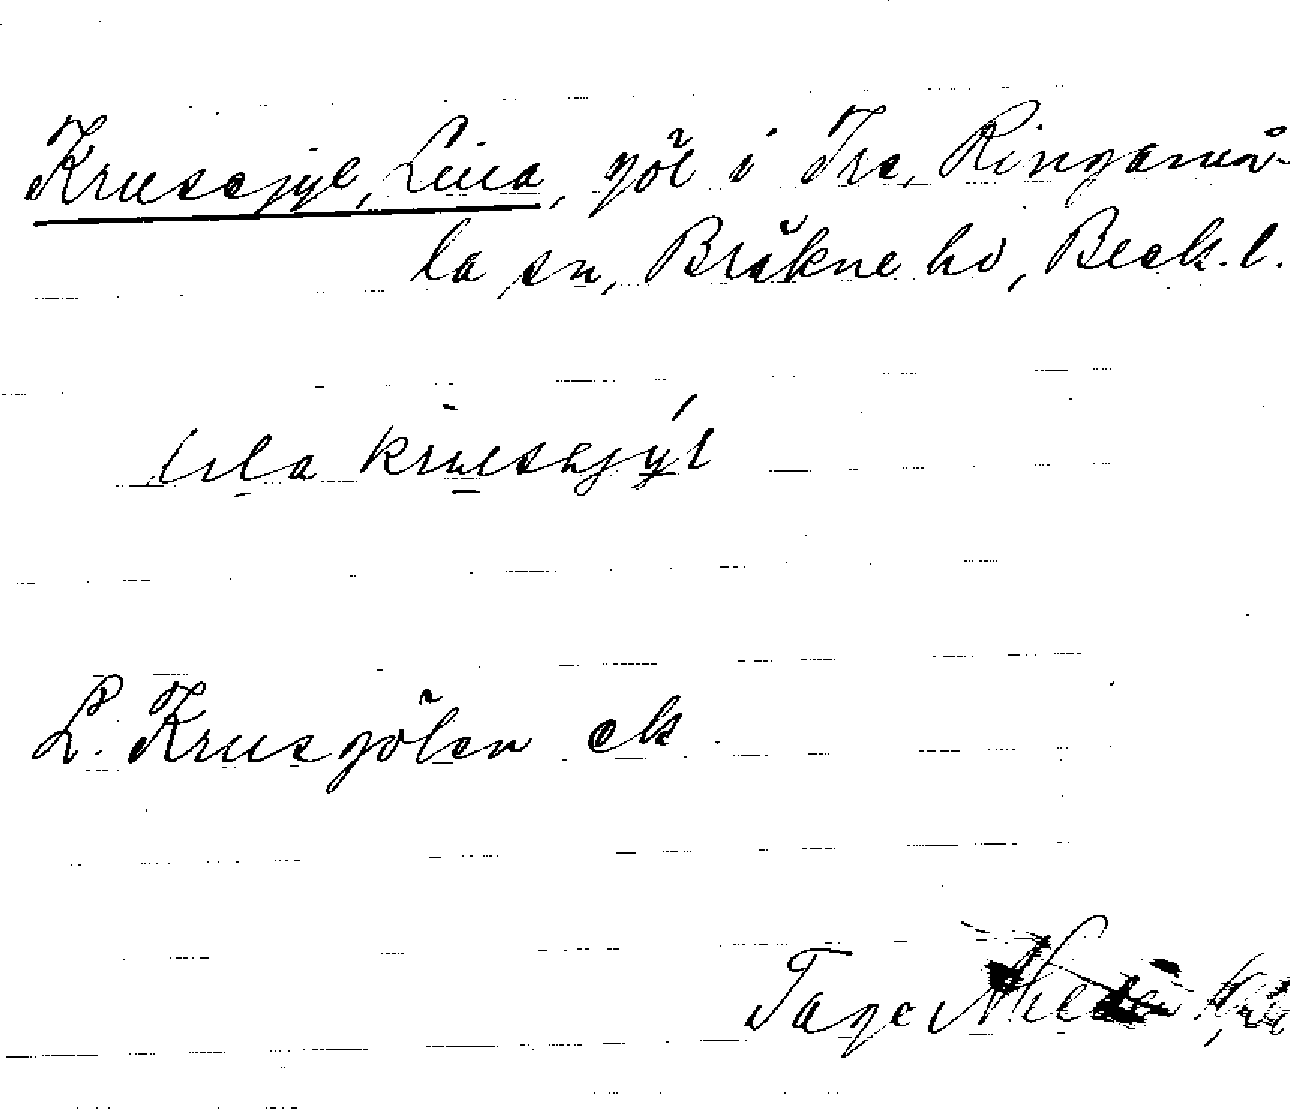 Krusegyl, Lilla, göl i Tre, Ringamå-
la sn, Bräkne hd, Blek. l.
lıla krusegýl
L. Krusgölen ek
Tage